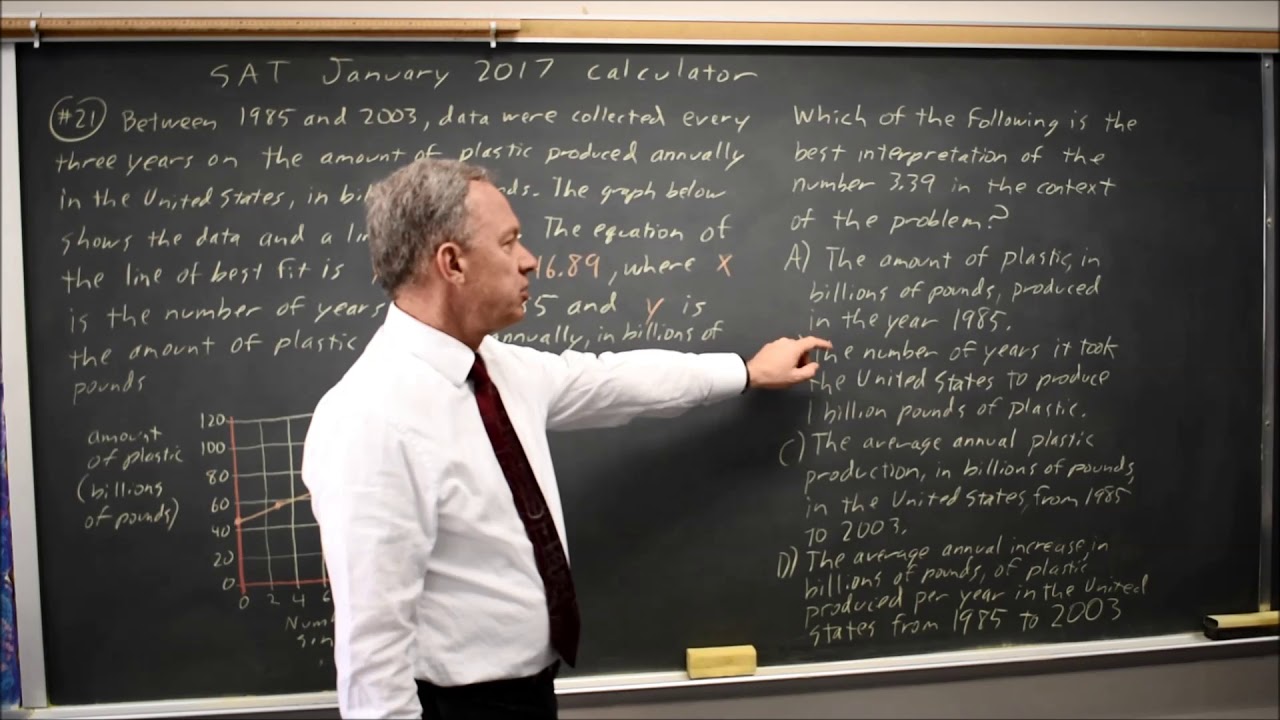 SAT January 2017 calculator
#21 Between 1985 and 2003, data were collected every
three years on the amount of plastic produced annually
in the United States, in bil ds. The graph below
shows the data and a lin The equation of
the line of best fit is 46.89, where x
is the number of years 85 and y is
the amount of plastic annually, in billions of
pounds
amount
of plastic
(billions
of pounds)
120
100
80
60
40
20
0
0 2 4 6
Num
sin
Which of the following is the
best interpretation of the
number 3.39 in the context
of the problem?
A) The amount of plastic, in
billions of pounds, produced
in the year 1985.
The number of years it took
the United States to produce
1 billion pounds of plastic.
C) The average annual plastic
production, in billions of pounds,
in the United States, from 1985
to 2003.
D) The average annual increase, in
billions of pounds, of plastic
produced per year in the United
States from 1985 to 2003